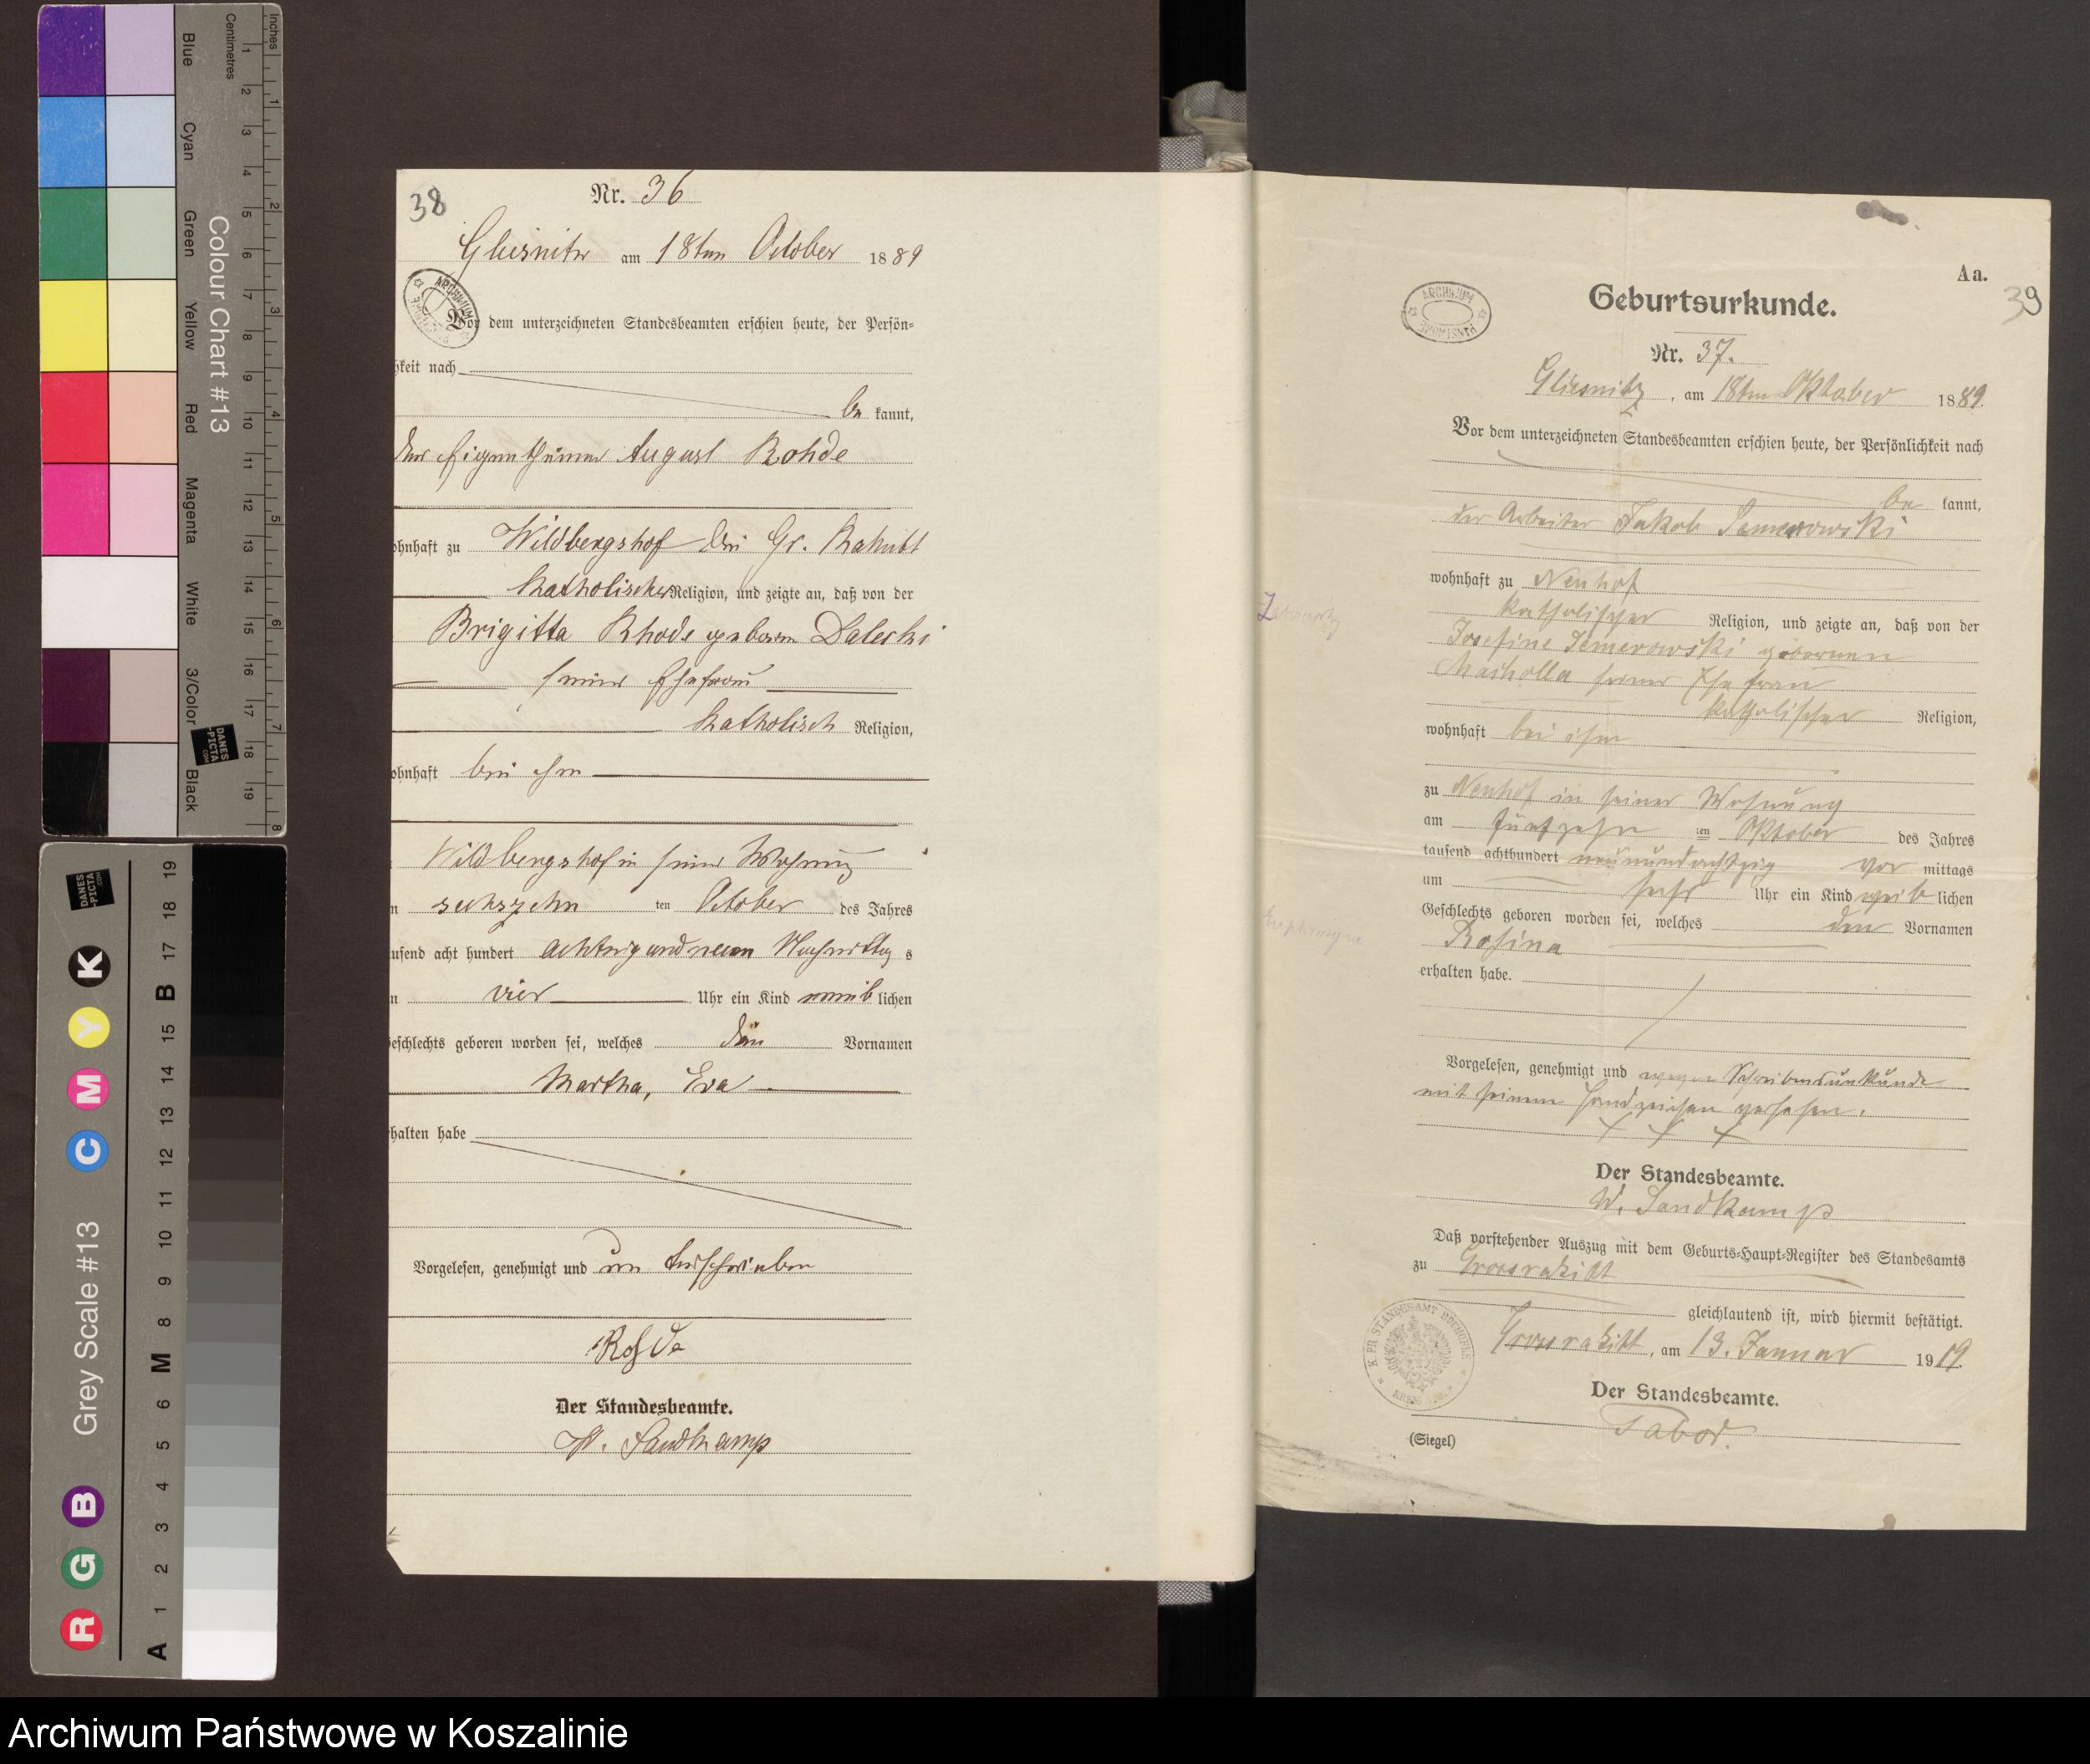 Blue
Cyan
Green
Yellow
Red
Magenta
White
3/Color
Black
Centimetres
Inches
1 2 3 4 5 6 7 8 9 10 11 12 13 14 15 16 17 18 19
1 2 3 4 5 6 7 8
Colour Chart #13
DANES
-PICTA
.COM
Grey Scale #13
R G B C M Y K
A 1 2 3 4 5 6 M 8 9 10 11 12 13 14 15 B 17 18 19
DANES
-PICTA
.COM
38
Nr. 36
Gliesnitz am 18ten October 1889
ARCHIWUM
Vor dem unterzeichneten Standesbeamten erschien heute, der Persön-
hkeit nach
be kannt,
der Eigenthümer August Rohde
ohnhaft zu Wildbergshof bei Gr. Rakitt
katholischer Religion, und zeigte an, daß von der
Brigitta Rhode geboren Dalecki
seiner Ehefrau
katholisch Religion,
ohnhaft bei ihm
Wildbergshof in seiner Wohnung
n sechszehn ten October des Jahres
ausend acht hundert achtzig und neun Nachmittag s
n vier Uhr ein Kind weib lichen
Geschlechts geboren worden sei, welches den Vornamen
Martha, Eva
rhalten habe
Vorgelesen, genehmigt und unterschrieben
Rohde
Der Standesbeamte.
W. Sandkamp
Aa.
39
ARCHIWUM
PAŃSTWOWE
Geburtsurkunde.
Nr. 37.
Gliesnitz, am 18ten Oktober 1889.
Vor dem unterzeichneten Standesbeamten erschien heute, der Persönlichkeit nach
be kannt,
der Arbeiter Jakob Semerowski
wohnhaft zu Neuhof
katholischer Religion, und zeigte an, daß von der
Josefine Semerowski geborenen
Macholla seiner Ehefrau
katholischer Religion,
wohnhaft bei ihm
zu Neuhof in seiner Wohnung
am fünfzehn ten Oktober des Jahres
tausend achthundert neunundachtzig vor mittags
um sechs Uhr ein Kind weib lichen
Geschlechts geboren worden sei, welches den Vornamen
Rosina
erhalten habe.
Vorgelesen, genehmigt und wegen Schreibensunkunde
mit seinem Handzeichen versehen.
+ + +
Der Standesbeamte.
W. Sandkamp
Daß vorstehender Auszug mit dem Geburts-Haupt-Register des Standesamts
zu Grossrakitt
gleichlautend ist, wird hiermit bestätigt.
Grossrakitt, am 13. Januar 1919.
K. PR. STANDESAMT
Der Standesbeamte.
Tabor.
(Siegel)
Archiwum Państwowe w Koszalinie